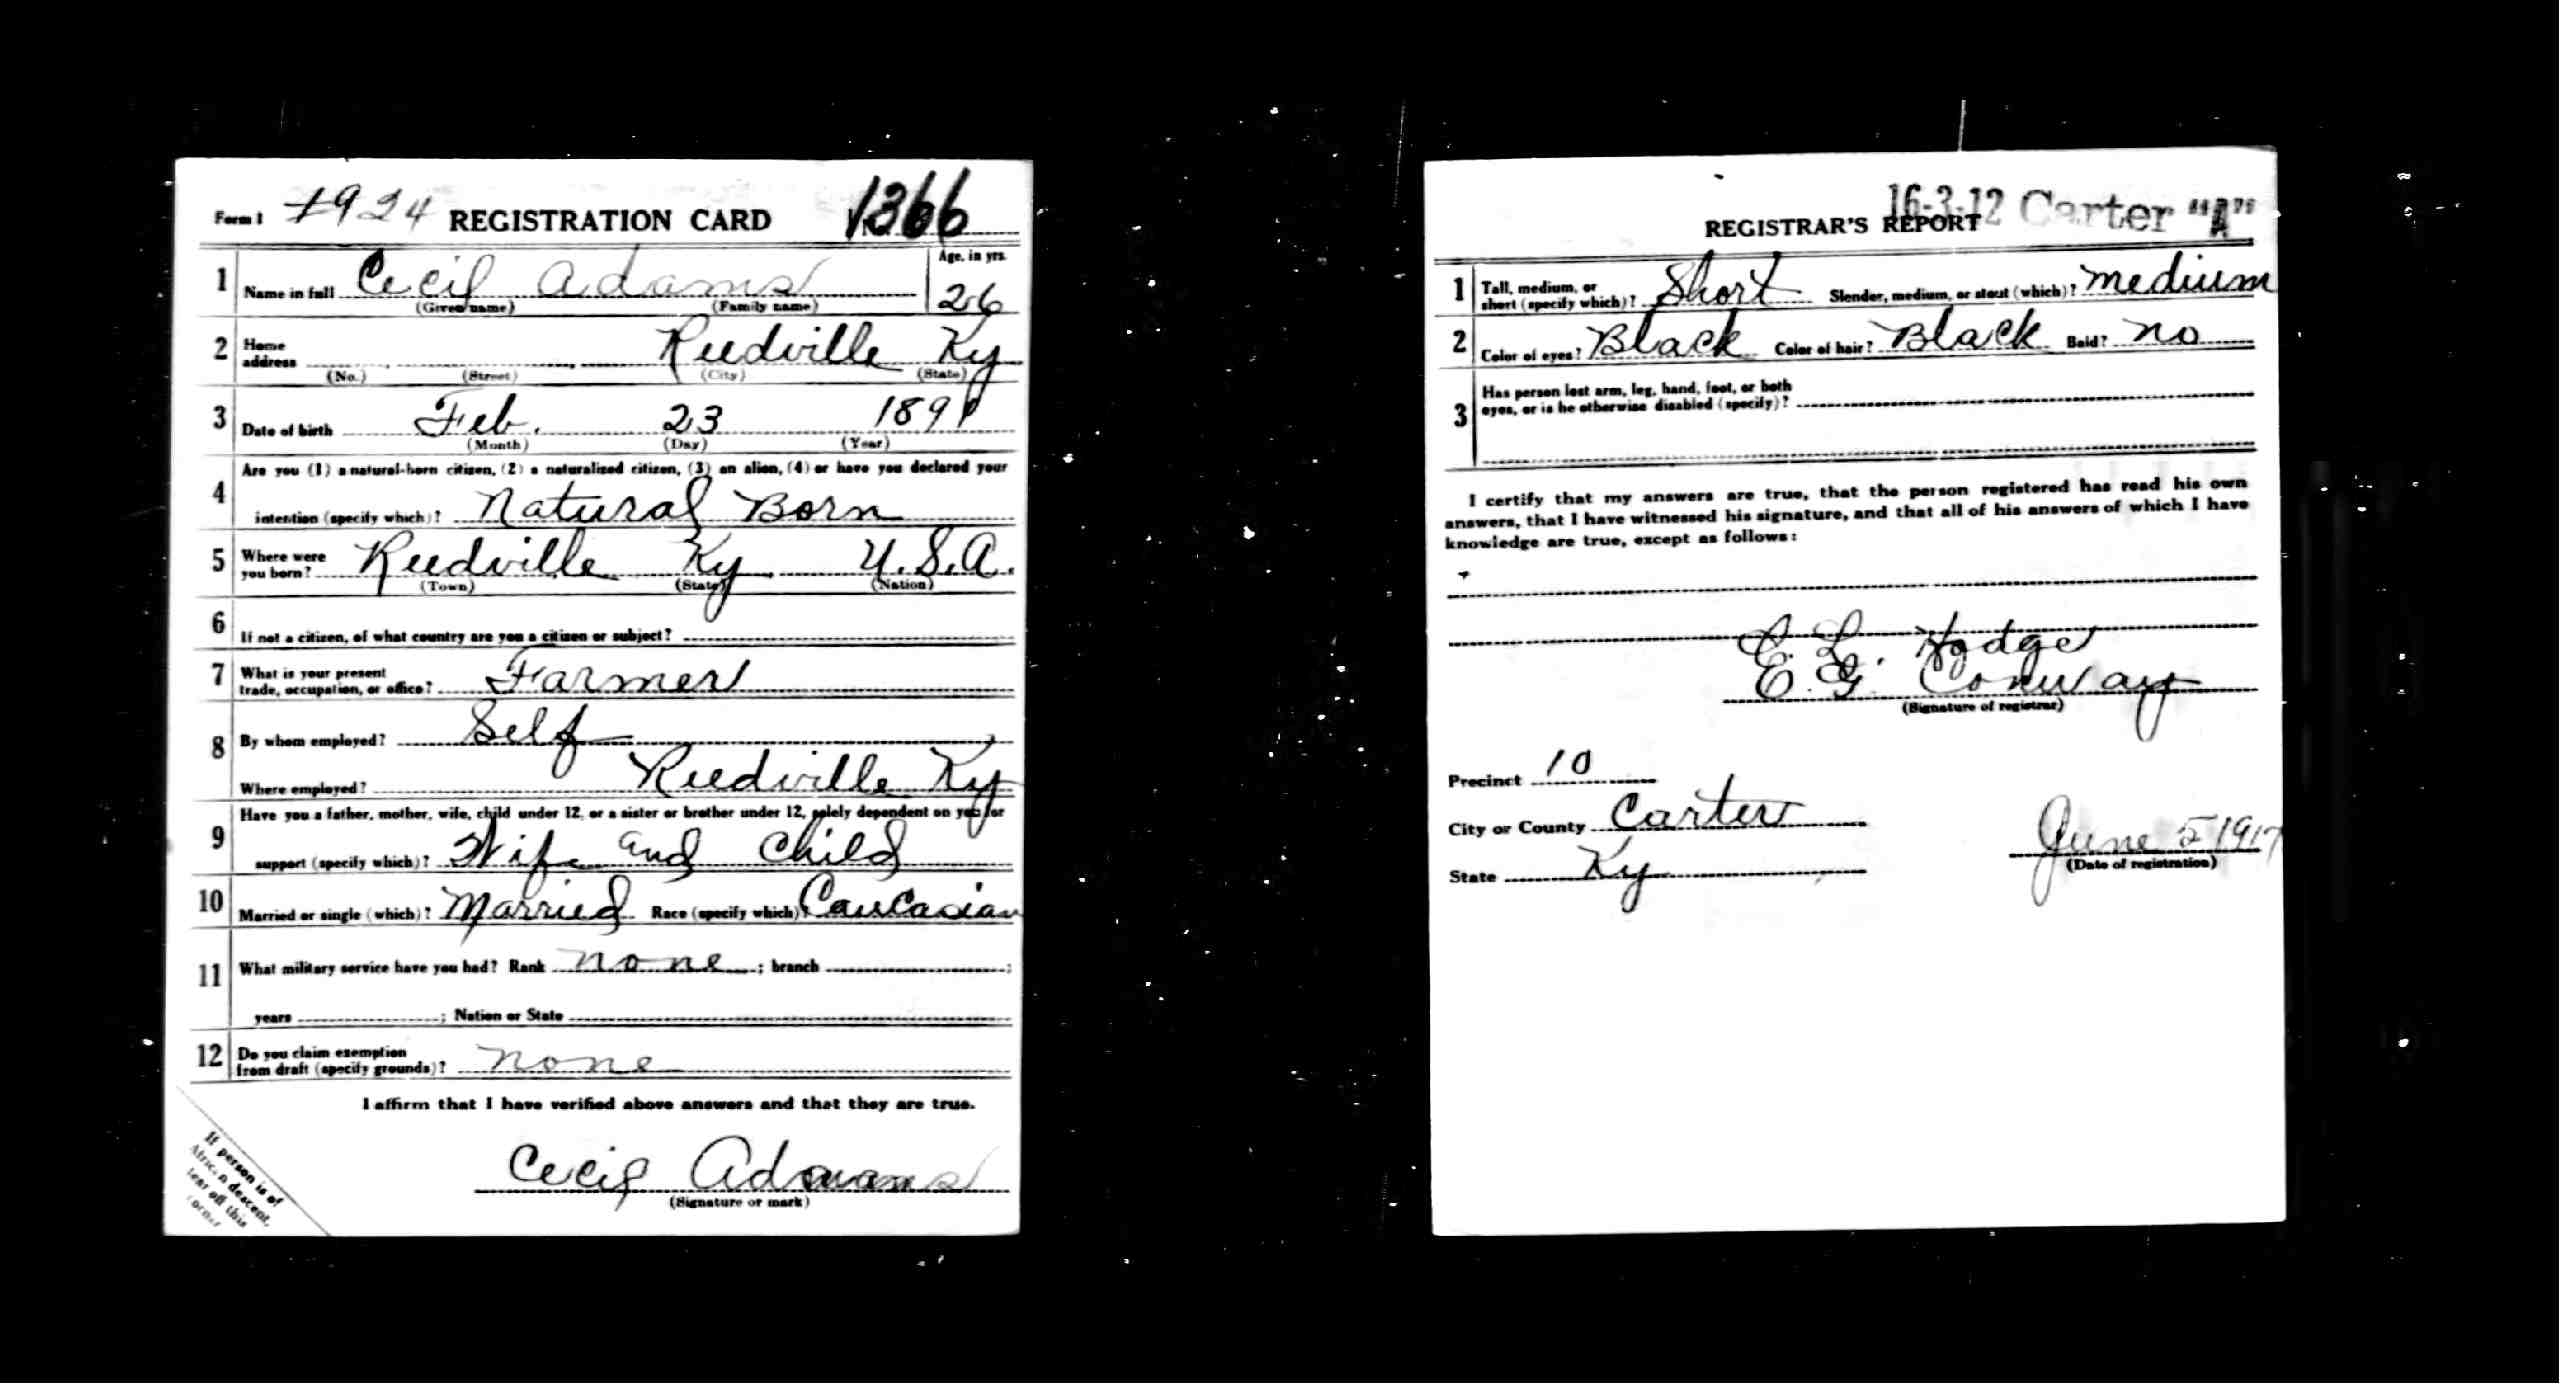 Form 1 1924 REGISTRATION CARD 1366
1 Name in full Cecil Adams Age, in yrs. 26
(Given name) (Family name)
2 Home address Reedville Ky
(No.) (Street) (City) (State)
3 Date of birth Feb. 23 1891
(Month) (Day) (Year)
4 Are you (1) a natural-born citizen, (2) a naturalized citizen, (3) an alien, (4) or have you declared your
intention (specify which)? Natural Born
5 Where were you born? Reedville Ky U.S.A.
(Town) (State) (Nation)
6 If not a citizen, of what country are you a citizen or subject?
7 What is your present
trade, occupation, or office? Farmer
8 By whom employed? Self
Where employed? Reedville Ky
9 Have you a father, mother, wife, child under 12, or a sister or brother under 12, solely dependent on you for
support (specify which)? Wife and Child
10 Married or single (which)? Married Race (specify which)? Caucasian
11 What military service have you had? Rank none ; branch ;
years ; Nation or State
12 Do you claim exemption
from draft (specify grounds)? none
I affirm that I have verified above answers and that they are true.
Cecil Adams
(Signature or mark)
If person is of
African descent,
tear off this
corner
16-3-12 Carter "A"
REGISTRAR'S REPORT
1 Tall, medium, or
short (specify which)? Short Slender, medium, or stout (which)? medium
2 Color of eyes? Black Color of hair? Black Bald? no
3 Has person lost arm, leg, hand, foot, or both
eyes, or is he otherwise disabled (specify)?
I certify that my answers are true, that the person registered has read his own
answers, that I have witnessed his signature, and that all of his answers of which I have
knowledge are true, except as follows:
E. L. Hodge
E. G. Conway
(Signature of registrar)
Precinct 10
City or County Carter
State Ky
June 5 1917
(Date of registration)